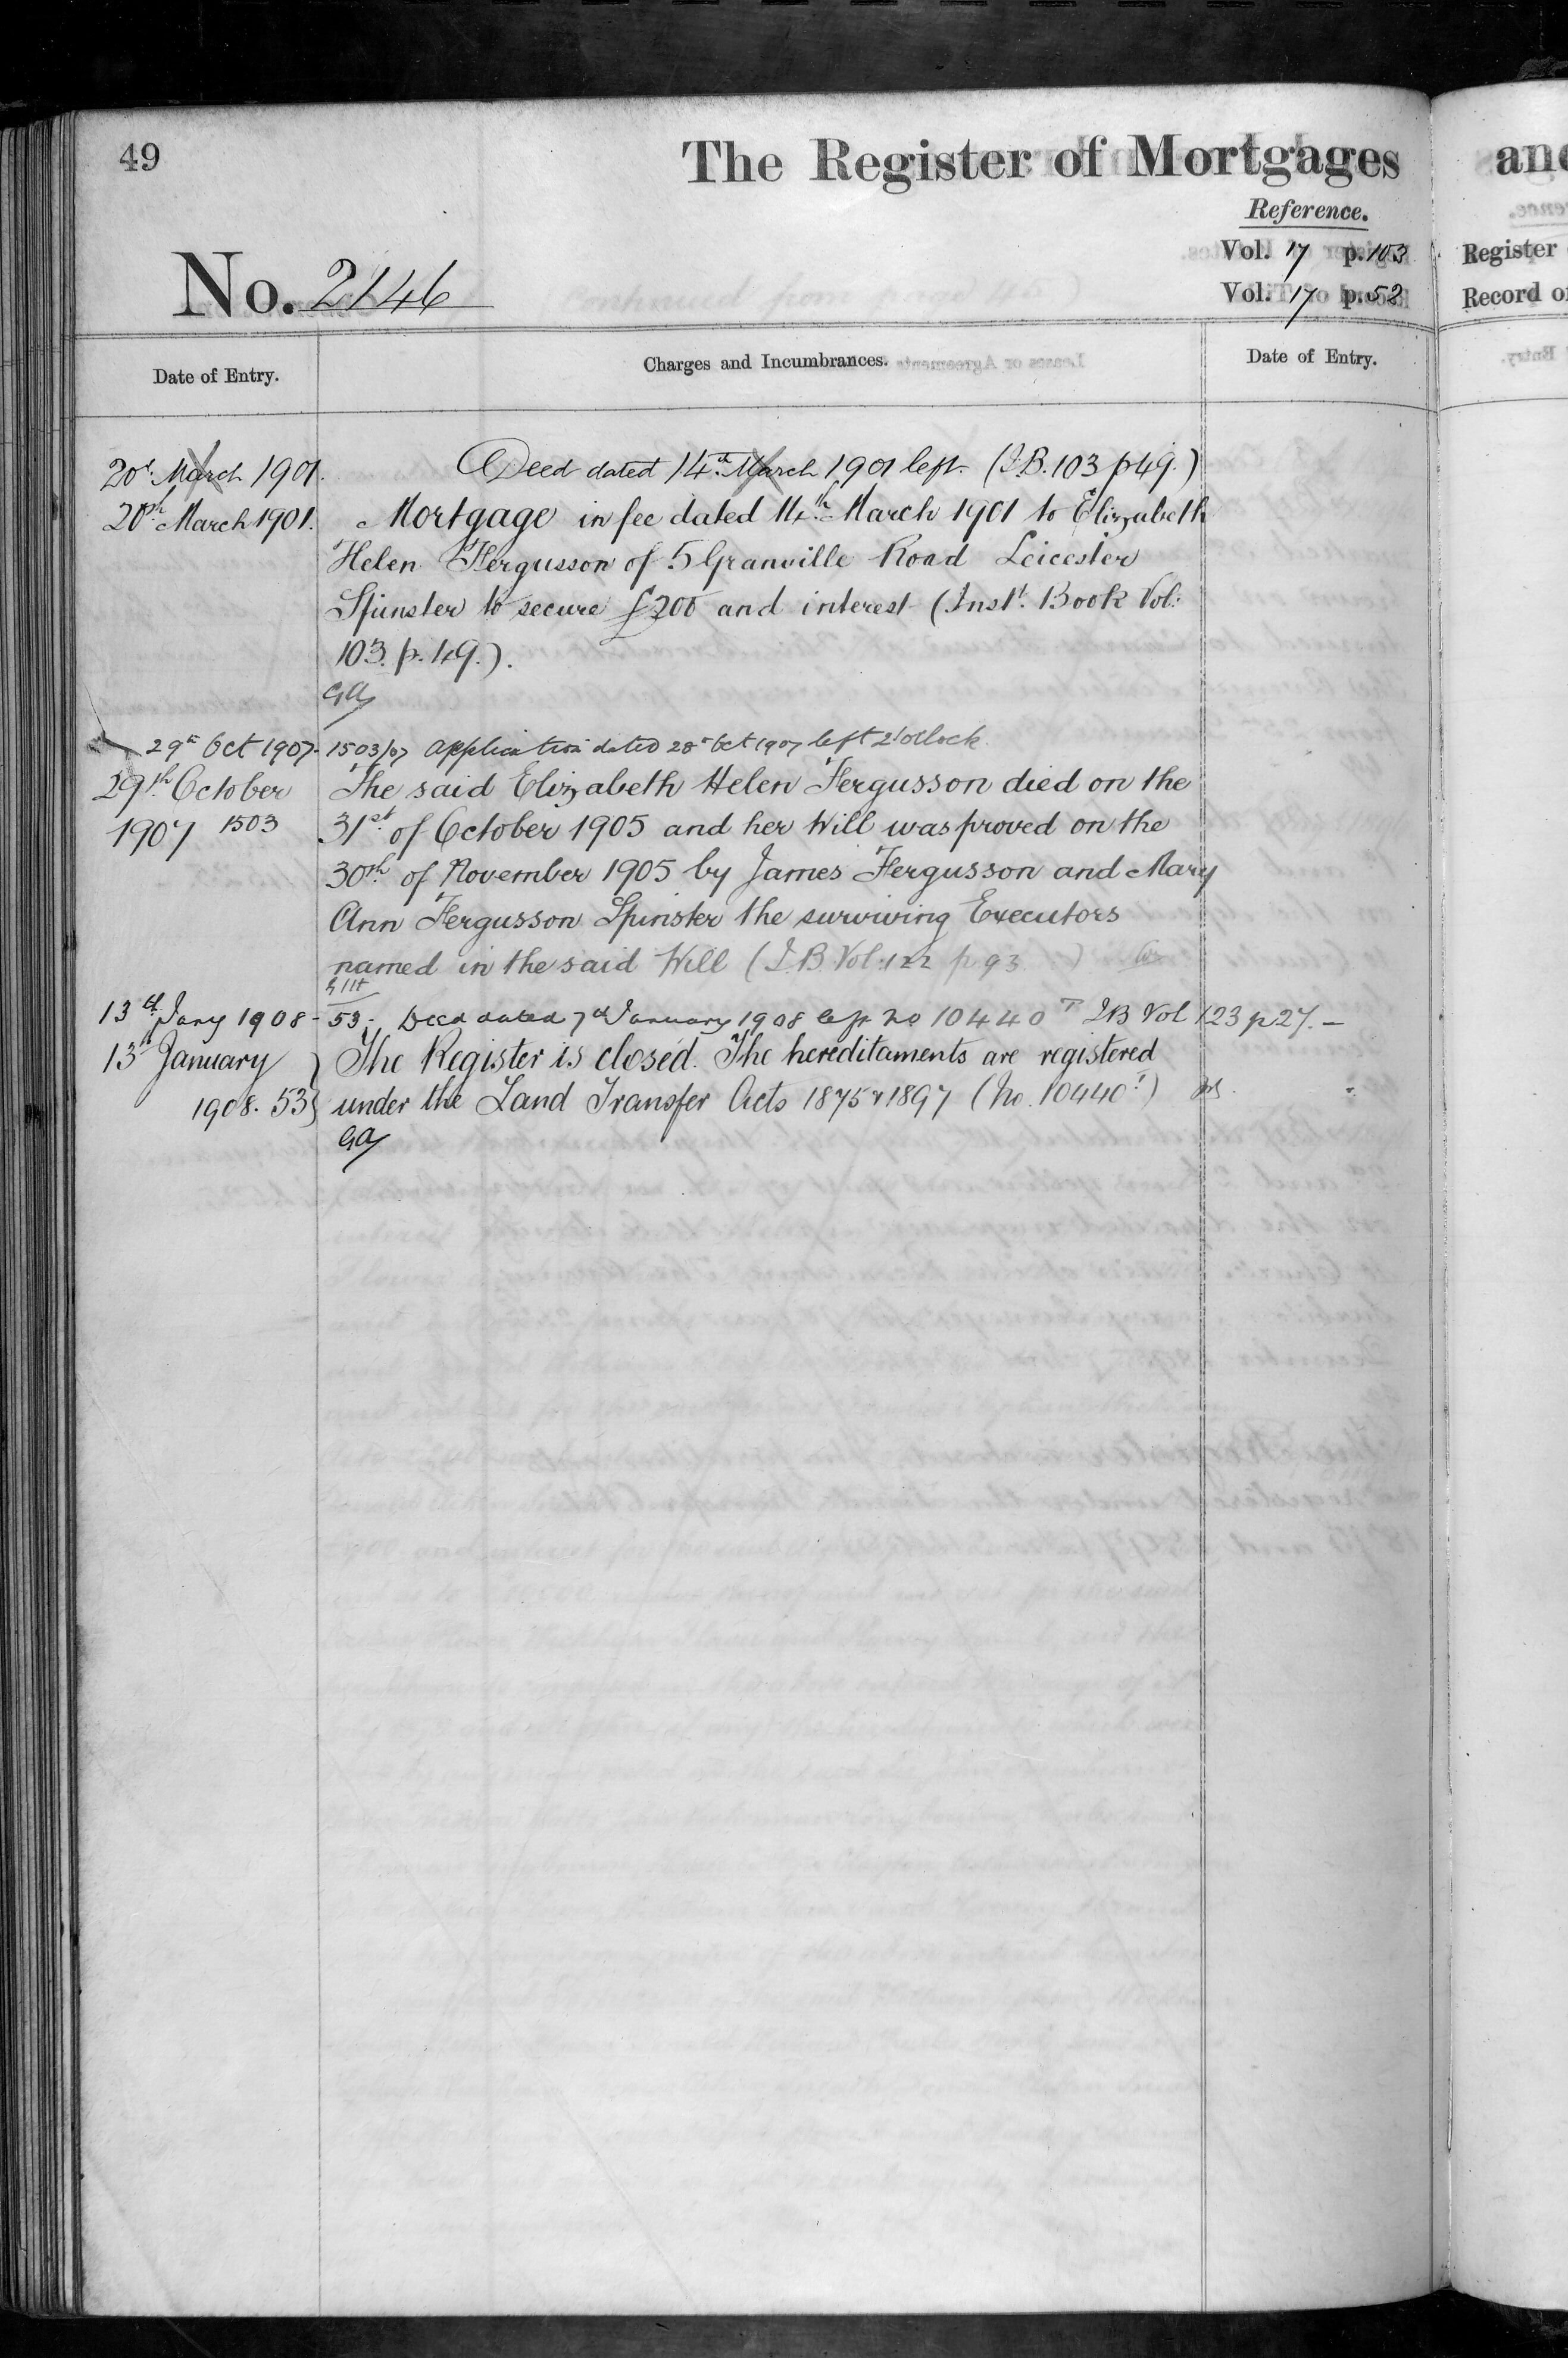 49
The Register of Mortgages
and
Reference.
Vol. 17 p. 103
Register
No. 2146
Vol. 17 p. 52
Record of
Date of Entry.
Charges and Incumbrances.
Date of Entry.
20th March 1901. Deed dated 14th March 1901 left. (I.B. 103 p 49.)
20th March 1901. Mortgage in fee dated 14th March 1901 to Elizabeth
Helen Fergusson of 5 Granville Road Leicester
Spinster to secure £200 and interest (Inst. Book Vol:
103. p. 49.).
GA
29th Oct 1907 - 1503/07 Application dated 28th Oct 1907 left 2 o'clock
29th October The said Elizabeth Helen Fergusson died on the
1907 1503 31st of October 1905 and her Will was proved on the
30th of November 1905 by James Fergusson and Mary
Ann Fergusson Spinster the surviving Executors
named in the said Will (I.B. Vol: 122 p 93 )
13th Jany 1908 - 53; Deed dated 7th January 1908 left No 10440 IB Vol 123 p 27. -
13th January The Register is closed. The hereditaments are registered
1908. 53 under the Land Transfer Acts 1875 & 1897 (No. 10440)
GA